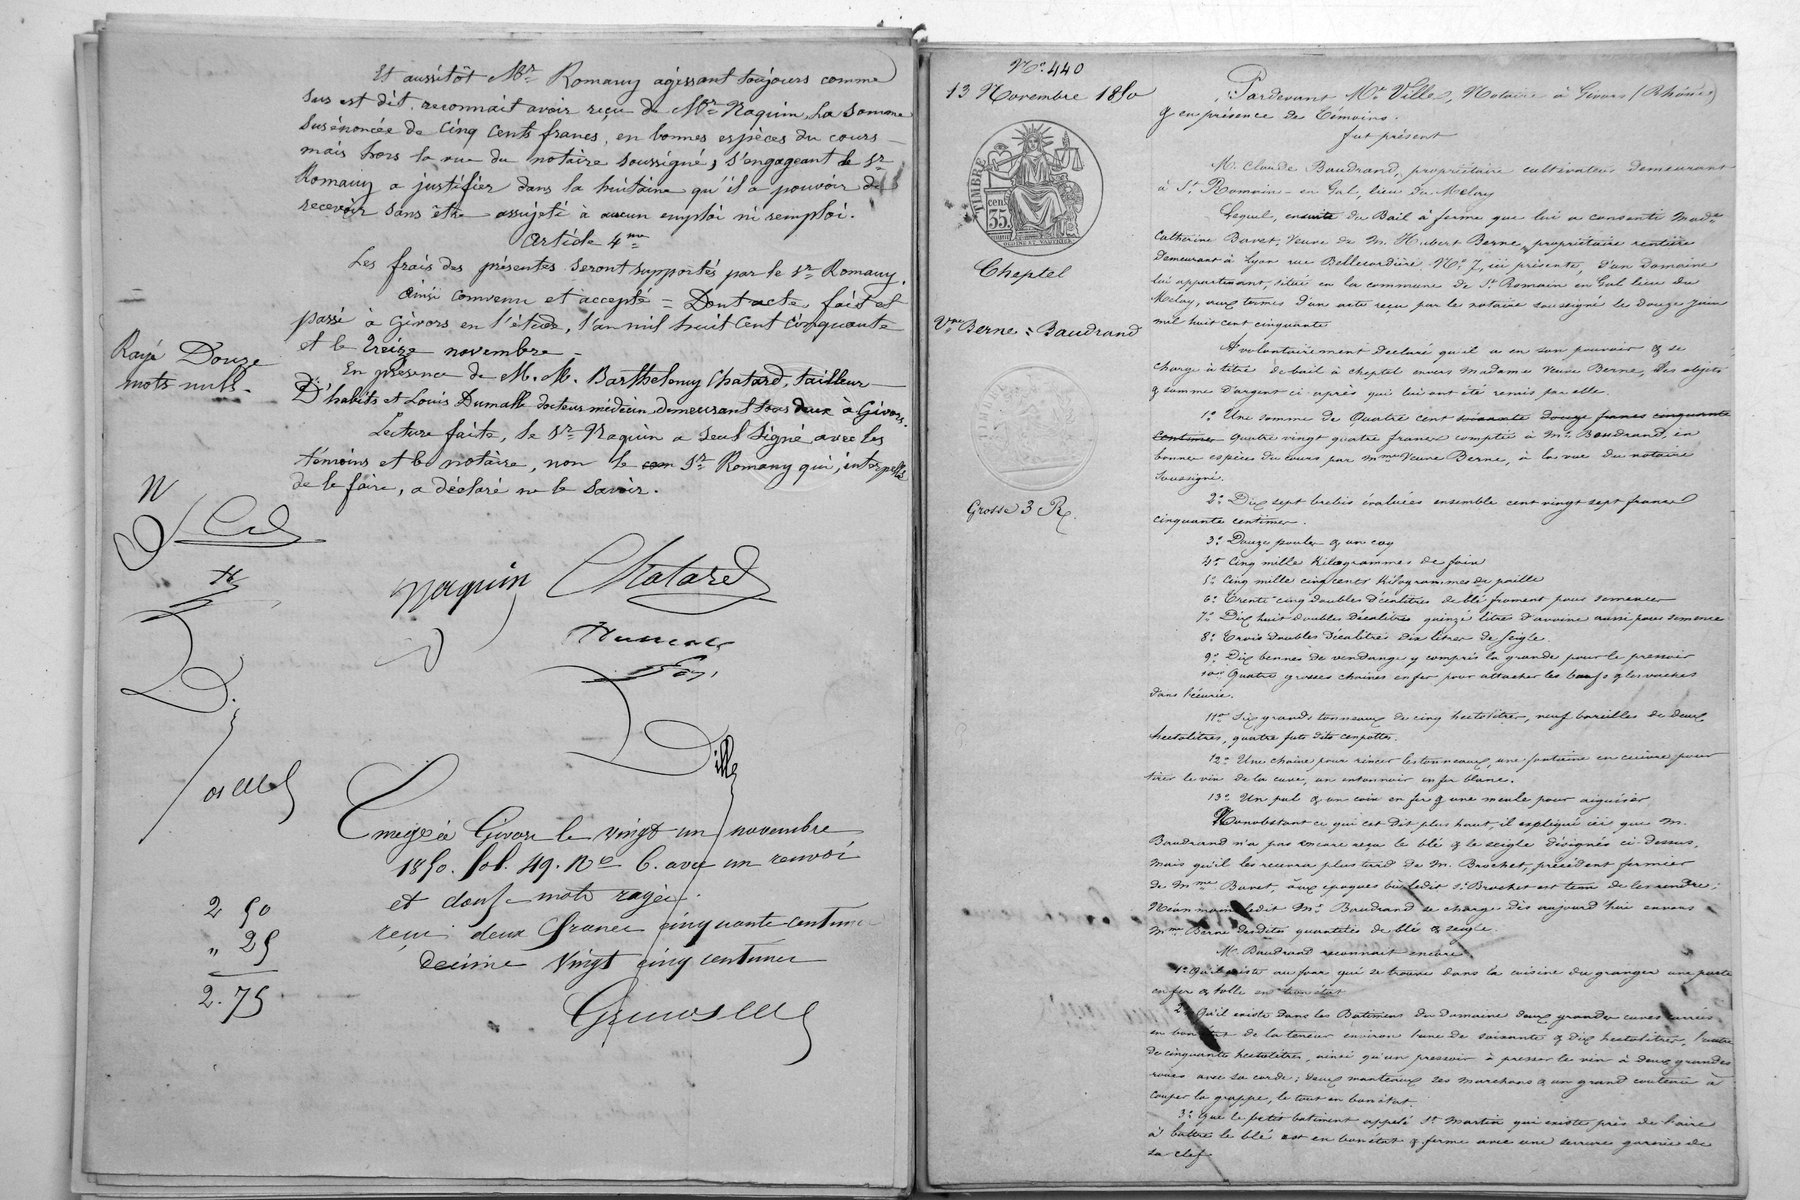 Et aussitôt Mr Romany agissant toujours comme
sus est dit, reconnait avoir reçu de Mr Naquin, la somme
susénoncée de cinq cents francs, en bonnes espèces du cours
mais hors la vue du notaire soussigné, s'engageant le sr
Romany a justifier dans la huitaine qu'il a pouvoir de
recevoir sans être assujeté à aucun emploi ni remploi.
Article 4me
Les frais des présentes seront supportés par le sr Romany.
Ainsi convenu et accepté = Dont acte, fait et
passé à Givors en l'étude, l'an mil huit cent cinquante
et le treize novembre _
En présence de M. M. Barthelemy Chatard, tailleur
D'habits et Louis Dumas docteur médecin demeurant tous deux à Givors.
Lecture faite, le sr Naquin a seul signé avec les
témoins et le notaire, non le sr Romany qui, interpellé
de le faire, a déclaré ne le savoir.
Rayé Douze
mots nuls.
N
Naquin Chatard
Ville
Enregistré à Givors le vingt un novembre
1850. fol. 49. Ro C. avec un renvoi
et douze mots rayés.
reçu deux francs cinquante centimes
decime vingt cinq centimes
2 50
" 25
2.75
No 440
13 Novembre 1850
TIMBRE
35
cent
Cheptel
Vve Berne = Baudrand
Grosse 3 R.
Pardevant Me Ville, Notaire à Givors (Rhône)
& en présence de Témoins.
fut présent
M. Claude Baudrand, propriétaire cultivateur demeurant
à St Romain-en-Gal, lieu du Melay
Lequel, ensuite du Bail à ferme que lui a consenti Made
Catherine Bavet, Veuve de M. Hubert Berne, propriétaire rentière
demeurant à Lyon rue Bellecordière No 7, ici présente, d'un Domaine
lui appartenant, situé en la commune de St Romain en Gal lieu du
Melay, aux termes d'un acte reçu par le notaire soussigné le douze juin
mil huit cent cinquante
A volontairement déclaré qu'il a en son pouvoir & se
charge à titre de bail à cheptel envers Madame Veuve Berne, des objets
& somme d'argent ci après qui lui ont été remis par elle.
1o Une somme de Quatre cent soixante douze francs cinquante
centimes quatre vingt quatre francs comptée à Mr Baudrand, en
bonnes espèces du cours par Mme Veuve Berne, à la vue du notaire
soussigné.
2o Dix sept brebis évaluées ensemble cent vingt sept francs
cinquante centimes.
3o Douze poules & un coq
4o Cinq mille kilogrammes de foin
5o Cinq mille cinq cents kilogrammes de paille
6o Trente cinq doubles Décalitres de blé froment pour semences
7o Dix huit doubles Décalitres quinze litres d'avoine aussi pour semence
8o Trois doubles Décalitres dix litres de seigle.
9o Dix bennes de vendange y compris la grande pour le pressoir
10o Quatre grosses chaines en fer pour attacher les bœufs & les vaches
dans l'écurie.
11o Six grands tonneaux de cinq hectolitres, neuf bareilles de deux
hectolitres, quatre futs dits cenpottes.
12o Une chaine pour rincer les tonneaux, une fontaine en cuivre pour
tirer le vin de la cuve, un entonnoir en fer blanc.
13o Un pal & un coin en fer & une meule pour aiguiser
Nonobstant ce qui est dit plus haut, il est expliqué ici que M.
Baudrand n'a pas encore reçu le blé & le seigle désignés ci-dessus,
mais qu'il les recevra plus tard de M. Brochet, précédent fermier
de Mme Bavet, aux époques où ledit sr Brochet est tenu de les rendre;
Néanmoins ledit Mr Baudrand se charge dès aujourd'hui envers
Mme Berne desdites quantités de blé & seigle.
Mr Baudrand reconnait encore
1o Qu'il existe au four qui se trouve dans la cuisine du granger une porte
en fer & tolle en bon état
2o Qu'il existe dans les Batimens du domaine deux grandes cuves
en bon état de la teneur environ l'une de soixante & dix hectolitres, l'autre
de cinquante hectolitres, ainsi qu'un pressoir à presser le vin à deux grandes
roues avec sa corde; deux manteaux ses marchons & un grand couteau à
couper la grappe, le tout en bon état.
3o Que le petit batiment appelé St Martin qui existe près de l'aire
à battre le blé est en bon état & ferme avec une serrure garnie de
sa clef